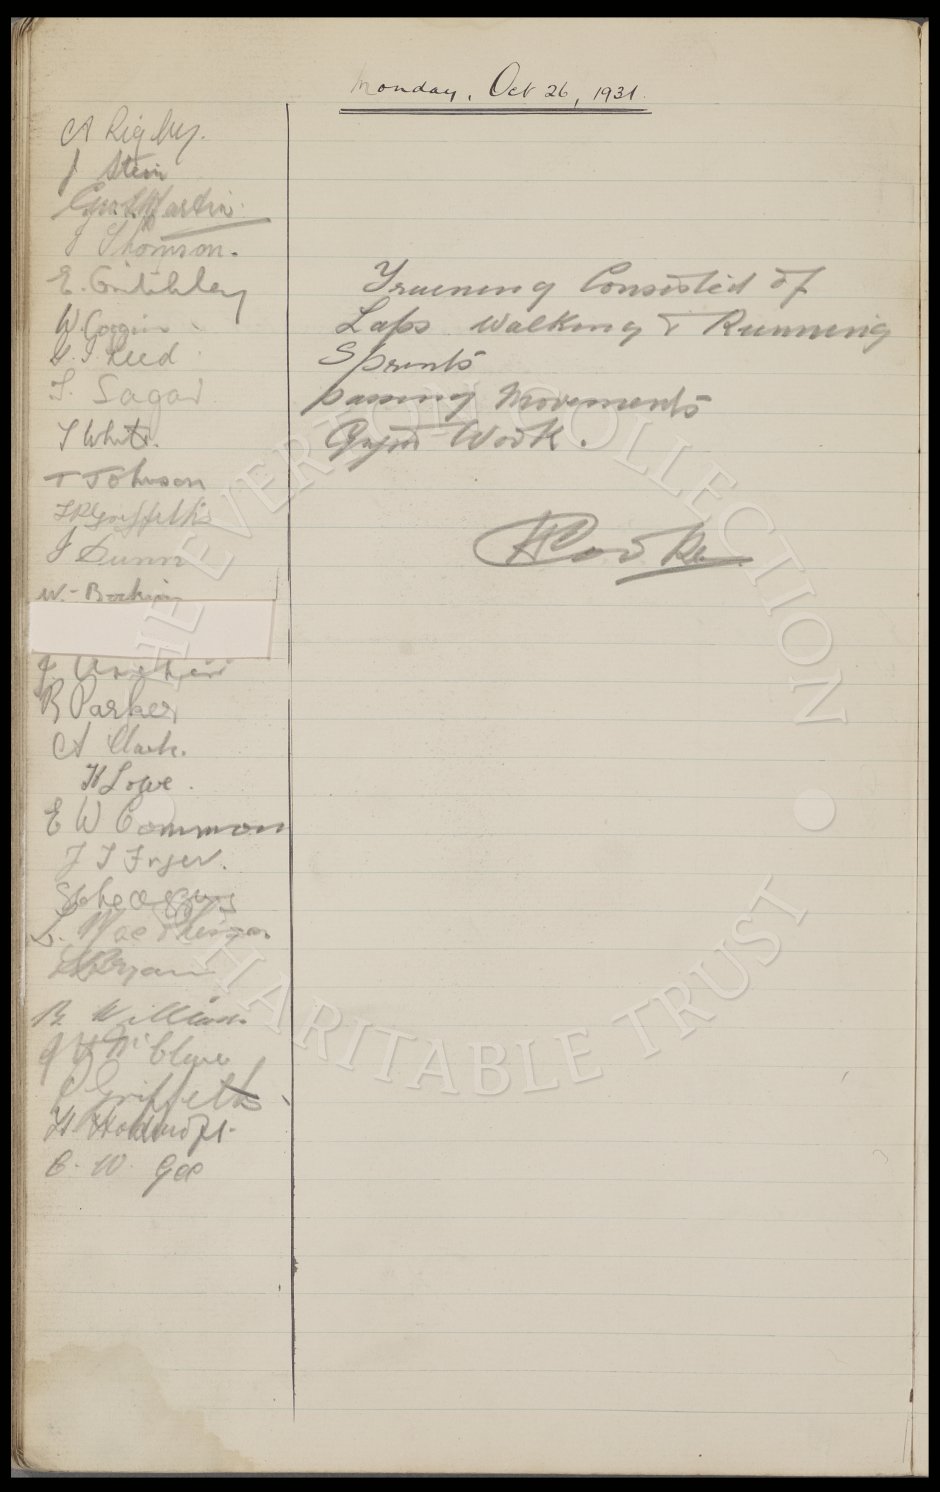 Monday, Oct 26, 1931.
A Rigby.
J Stein
Geo H Martin
J Thomson.
E. Critchley
W Coggin
G. J Reed
T. Sagar
T White.
T Johnson
T P Griffiths
J Dunn
W. Bocking
J Archer
R Parker
A Clark.
H Lowe.
E W Common
J I Fryer.
L. MacPherson
B Williams
J H McClure
P Griffiths
H
C. W. Gee
Training Consisted of
Laps Walking & Running
Sprints
passing Movements
Gym Work.
H Cooke.
THE EVERTON COLLECTION
CHARITABLE TRUST